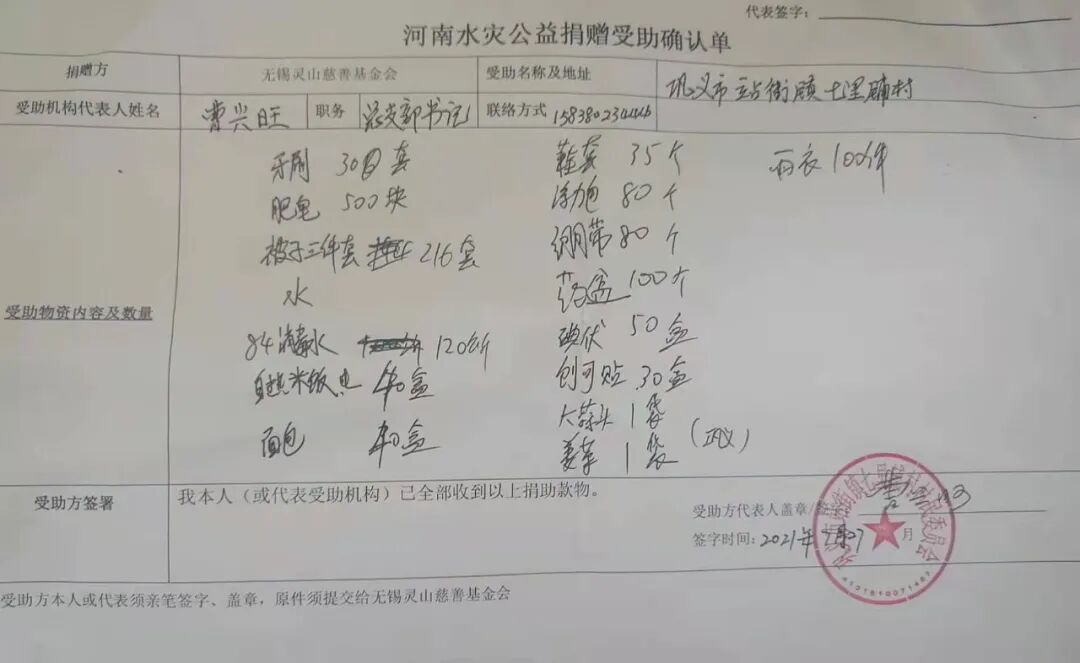 代表签字：
河南水灾公益捐赠受助确认单
捐赠方 无锡灵山慈善基金会 受助名称及地址 巩义市站街镇七里铺村
受助机构代表人姓名 曹兴旺 职务 总支部书记 联络方式 15838023444
受助物资内容及数量
牙刷 300套
肥皂 500块
被子三件套 216套
水
84消毒水 120斤
自热米饭 40盒
面包 40盒
鞋套 35个
浮力包 80个
绷带 80个
药盒 100个
碘伏 50盒
创可贴 30盒
大蒜头 1袋
姜革 1袋 (巩义)
雨衣 100件
受助方签署
我本人（或代表受助机构）已全部收到以上捐助款物。
受助方代表人盖章/
签字时间：2021年7月27
受助方本人或代表须亲笔签字、盖章，原件须提交给无锡灵山慈善基金会